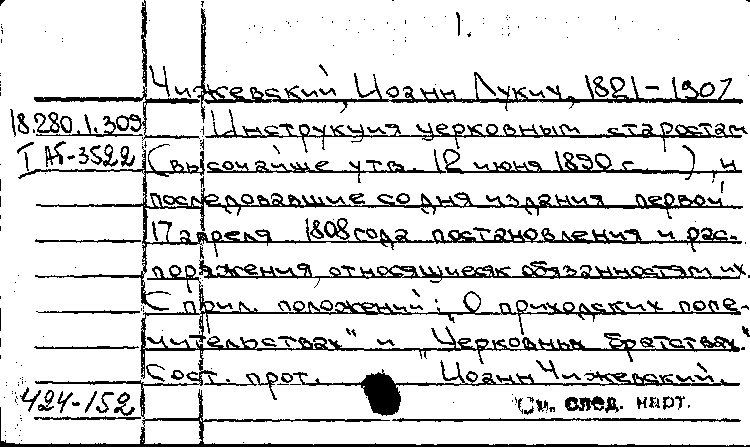 1.
Чижевский, Иоанн Лукич, 1821-1907
18.280.1.309 Инструкция церковным старостам
I АБ-3522 (высочайше утв. 12 июня 1890 г. ), и
последовавшие со дня издания первой
17 апреля 1808 года постановления и рас-
поряжения, относящиеся к обязанностям их.
С прил. положений: "О приходских попе-
чительствах" и "Церковных братствах."
Сост. прот. Иоанн Чижевский.
424-152 См. след. карт.